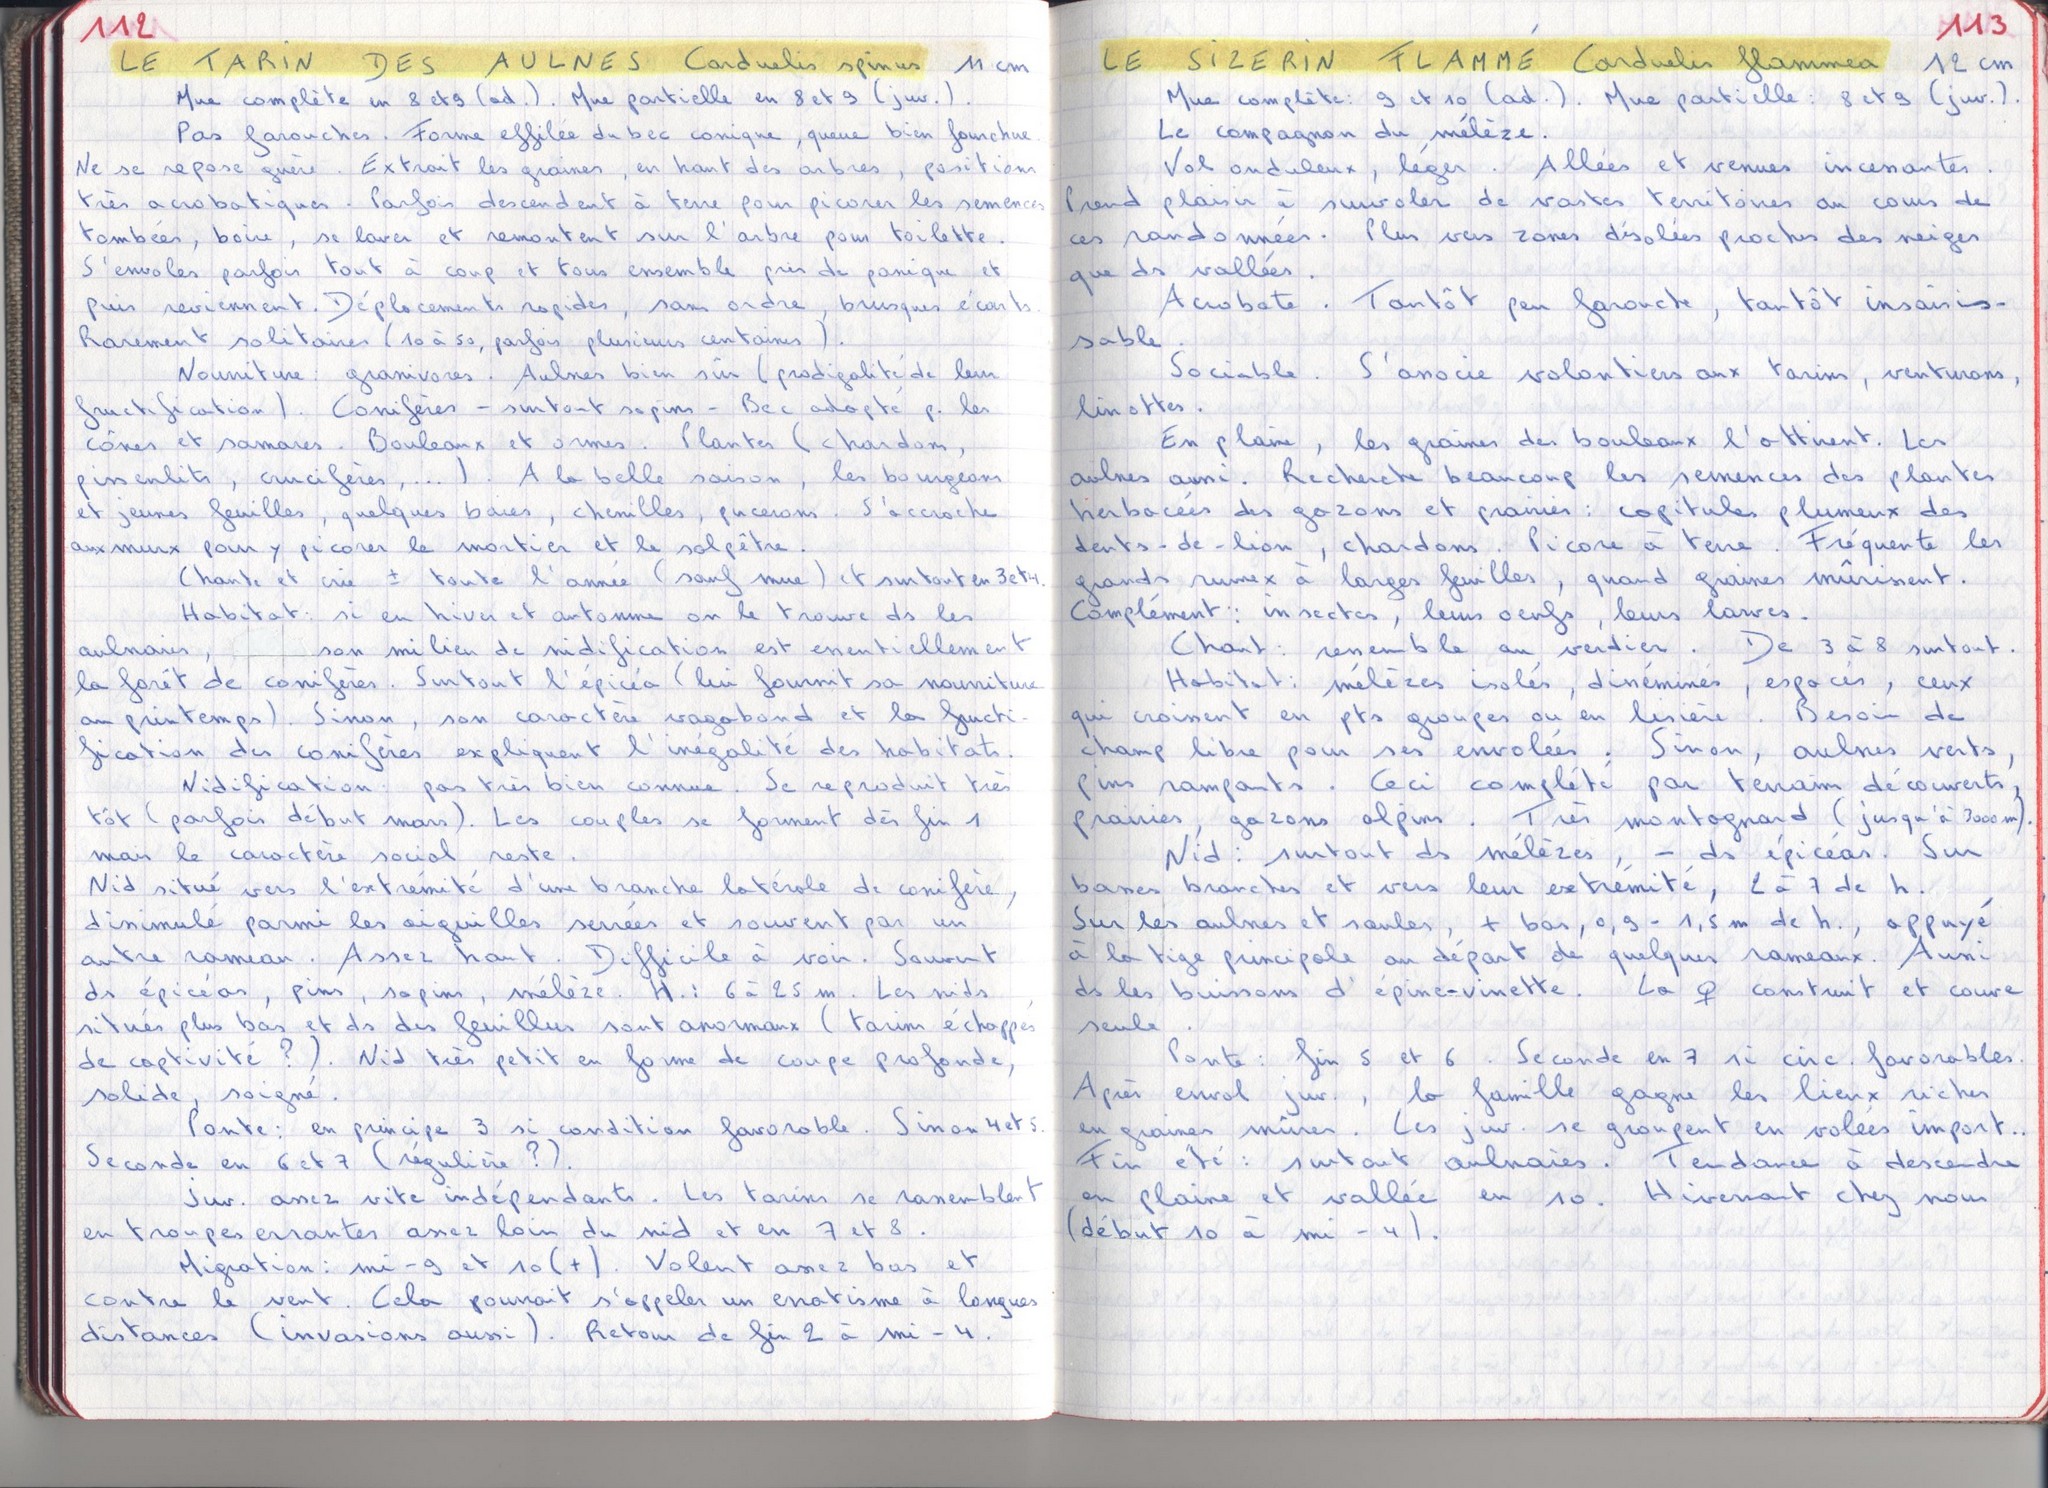 112
LE TARIN DES AULNES Carduelis spinus 11 cm
Mue complète en 8 et 9 (ad.). Mue partielle en 8 et 9 (juv.).
Pas farouches. Forme effilée du bec conique, queue bien fourchue.
Ne se repose guère. Extrait les graines, en haut des arbres, positions
très acrobatiques. Parfois descendent à terre pour picorer les semences
tombées, boire, se laver et remontent sur l'arbre pour toilette.
S'envoles parfois tout à coup et tous ensemble pris de panique et
puis reviennent. Déplacements rapides, sans ordre, brusques écarts.
Rarement solitaires (10 à 50, parfois plusieurs centaines).
Nourriture: granivores. Aulnes bien sûr (prodigalité de leur
fructification). Conifères - surtout sapins - Bec adapté p. les
cônes et samares. Bouleaux et ormes. Plantes (chardons,
pissenlits, crucifères, ...). A la belle saison, les bourgeons
et jeunes feuilles, quelques baies, chenilles, pucerons. S'accroche
aux murs pour y picorer le mortier et le salpêtre.
Chante et crie ± toute l'année (sauf mue) et surtout en 3 et 4.
Habitat: si en hiver et automne on le trouve ds les
aulnaies, son milieu de nidification est essentiellement
la forêt de conifères. Surtout l'épicéa (lui fournit sa nourriture
au printemps). Sinon, son caractère vagabond et la fructi-
fication des conifères expliquent l'inégalité des habitats.
Nidification: pas très bien connue. Se reproduit très
tôt (parfois début mars). Les couples se forment dès fin 1
mais le caractère social reste.
Nid situé vers l'extrémité d'une branche latérale de conifère,
dissimulé parmi les aiguilles serrées et souvent par un
autre rameau. Assez haut. Difficile à voir. Souvent
ds épicéas, pins, sapins, mélèze. H.: 6 à 25 m. Les nids
situés plus bas et ds des feuillus sont anormaux (tarins échappés
de captivité ?). Nid très petit en forme de coupe profonde,
solide, soigné.
Ponte: en principe 3 si condition favorable. Sinon 4 et 5.
Seconde en 6 et 7 (régulière ?).
Juv. assez vite indépendants. Les tarins se rassemblent
en troupes errantes assez loin du nid et en 7 et 8.
Migration: mi-9 et 10 (+). Volent assez bas et
contre le vent. Cela pourrait s'appeler un erratisme à longues
distances (invasions aussi). Retour de fin 2 à mi-4.
113
LE SIZERIN FLAMMÉ Carduelis flammea 12 cm
Mue complète: 9 et 10 (ad.). Mue partielle: 8 et 9 (juv.).
Le compagnon du mélèze.
Vol onduleux, léger. Allées et venues incessantes.
Prend plaisir à survoler de vastes territoires au cours de
ces randonnées. Plus vers zones désolées proches des neiges
que ds vallées.
Acrobate. Tantôt peu farouche, tantôt insaisis-
sable.
Sociable. S'associe volontiers aux tarins, venturons,
linottes.
En plaine, les graines des bouleaux l'attirent. Les
aulnes aussi. Recherche beaucoup les semences des plantes
herbacées des gazons et prairies: capitules plumeux des
dents-de-lion, chardons. Picore à terre. Fréquente les
grands rumex à larges feuilles, quand graines mûrissent.
Complément: insectes, leurs oeufs, leurs larves.
Chant: ressemble au verdier. De 3 à 8 surtout.
Habitat: mélèzes isolés, disséminés, espacés, ceux
qui croissent en pts groupes ou en lisière. Besoin de
champ libre pour ses envolées. Sinon, aulnes verts,
pins rampants. Ceci complété par terrains découverts,
prairies, gazons alpins. Très montagnard (jusqu'à 3000 m).
Nid: surtout ds mélèzes, - ds épicéas. Sur
basses branches et vers leur extrémité, 2 à 7 de h.
Sur les aulnes et saules, + bas, 0,9 - 1,5 m de h., appuyé
à la tige principale au départ de quelques rameaux. Aussi
ds les buissons d'épine-vinette. La ♀ construit et couve
seule.
Ponte: fin 5 et 6. Seconde en 7 si circ. favorables.
Après envol juv., la famille gagne les lieux riches
en graines mûres. Les juv. se groupent en volées import..
Fin été: surtout aulnaies. Tendance à descendre
en plaine et vallée en 10. Hivernant chez nous
(début 10 à mi-4).